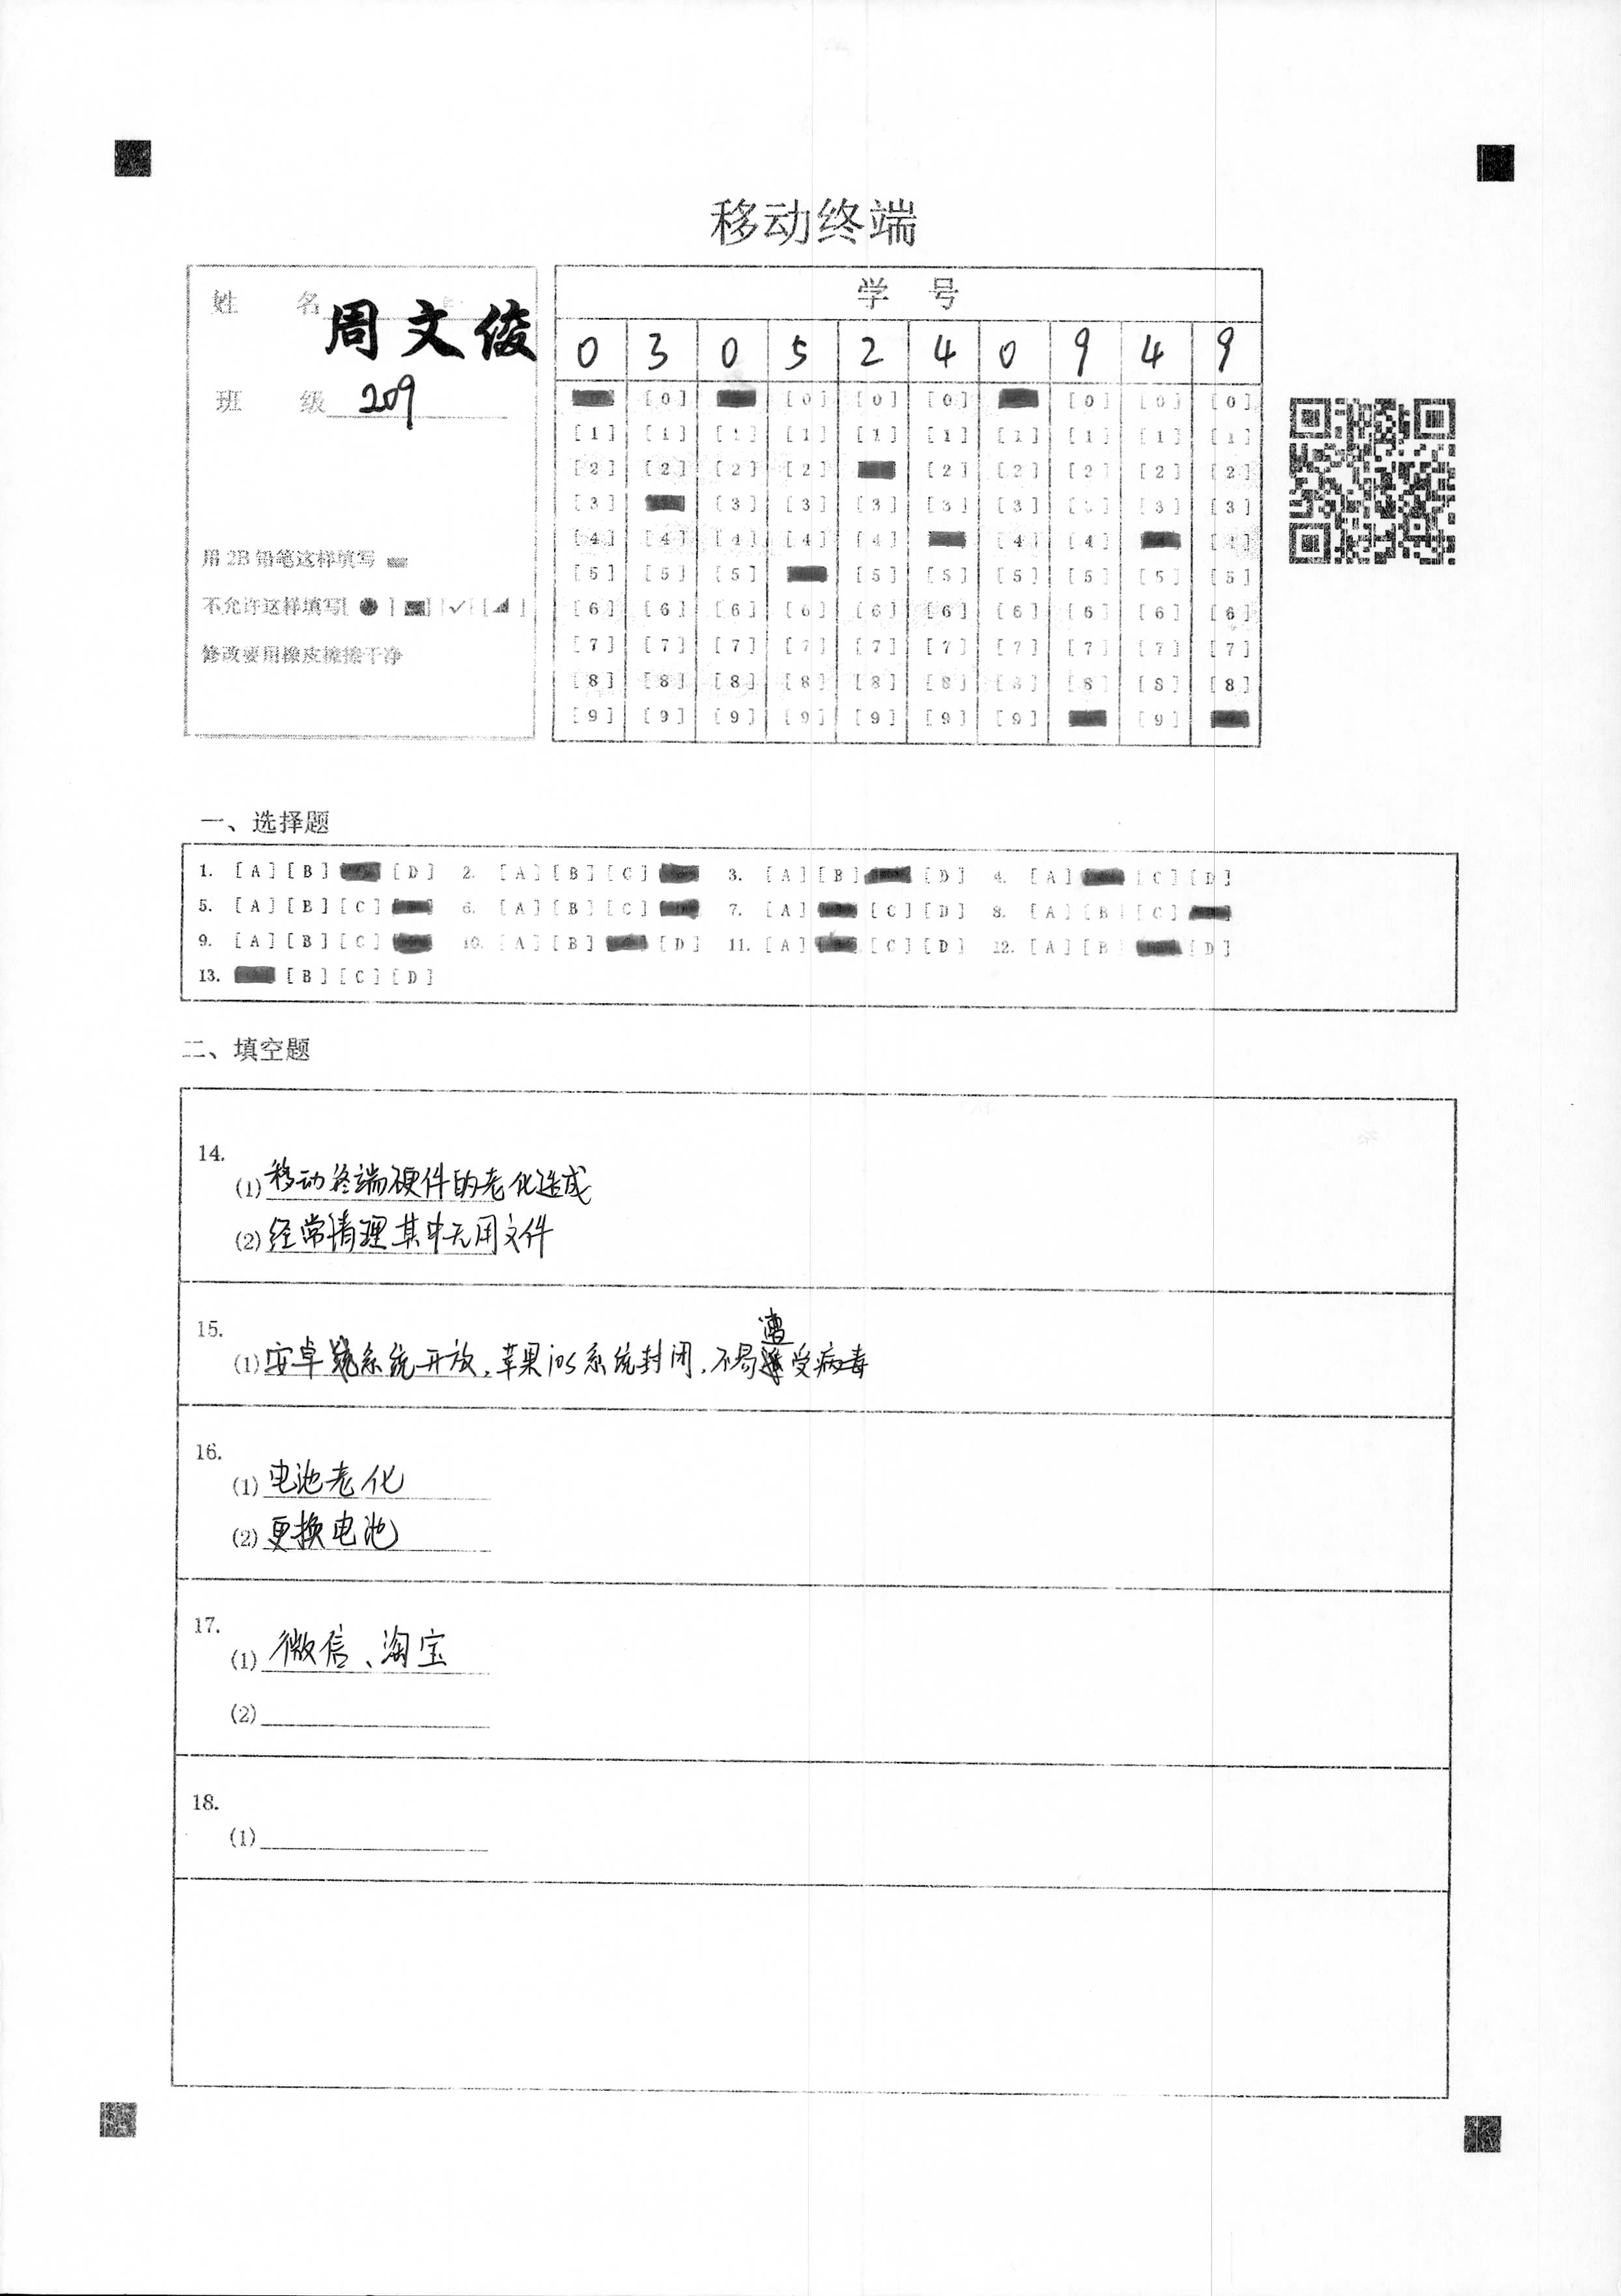 移动终端
姓 名 周文俊
班 级 209
用 2B 铅笔这样填写
不允许这样填写[ ● ] [■] [✓] [◢ ]
修改要用橡皮擦擦干净
学 号
0 3 0 5 2 4 0 9 4 9
[0] [0] [0] [0] [0] [0] [0]
[1] [1] [1] [1] [1] [1] [1] [1] [1] [1]
[2] [2] [2] [2] [2] [2] [2] [2] [2]
[3] [3] [3] [3] [3] [3] [3] [3] [3]
[4] [4] [4] [4] [4] [4] [4] [4]
[5] [5] [5] [5] [5] [5] [5] [5] [5]
[6] [6] [6] [6] [6] [6] [6] [6] [6] [6]
[7] [7] [7] [7] [7] [7] [7] [7] [7] [7]
[8] [8] [8] [8] [8] [8] [8] [8] [8] [8]
[9] [9] [9] [9] [9] [9] [9] [9]
一、选择题
1. [A] [B] [D] 2. [A] [B] [C] 3. [A] [B] [D] 4. [A] [C] [D]
5. [A] [B] [C] 6. [A] [B] [C] 7. [A] [C] [D] 8. [A] [B] [C]
9. [A] [B] [C] 10. [A] [B] [D] 11. [A] [C] [D] 12. [A] [B] [D]
13. [B] [C] [D]
二、填空题
14.
(1) 移动终端硬件的老化造成
(2) 经常清理其中无用文件
15.
(1) 安卓系统开放，苹果ios系统封闭，不易遭受病毒
16.
(1) 电池老化
(2) 更换电池
17.
(1) 微信、淘宝
(2)
18.
(1)